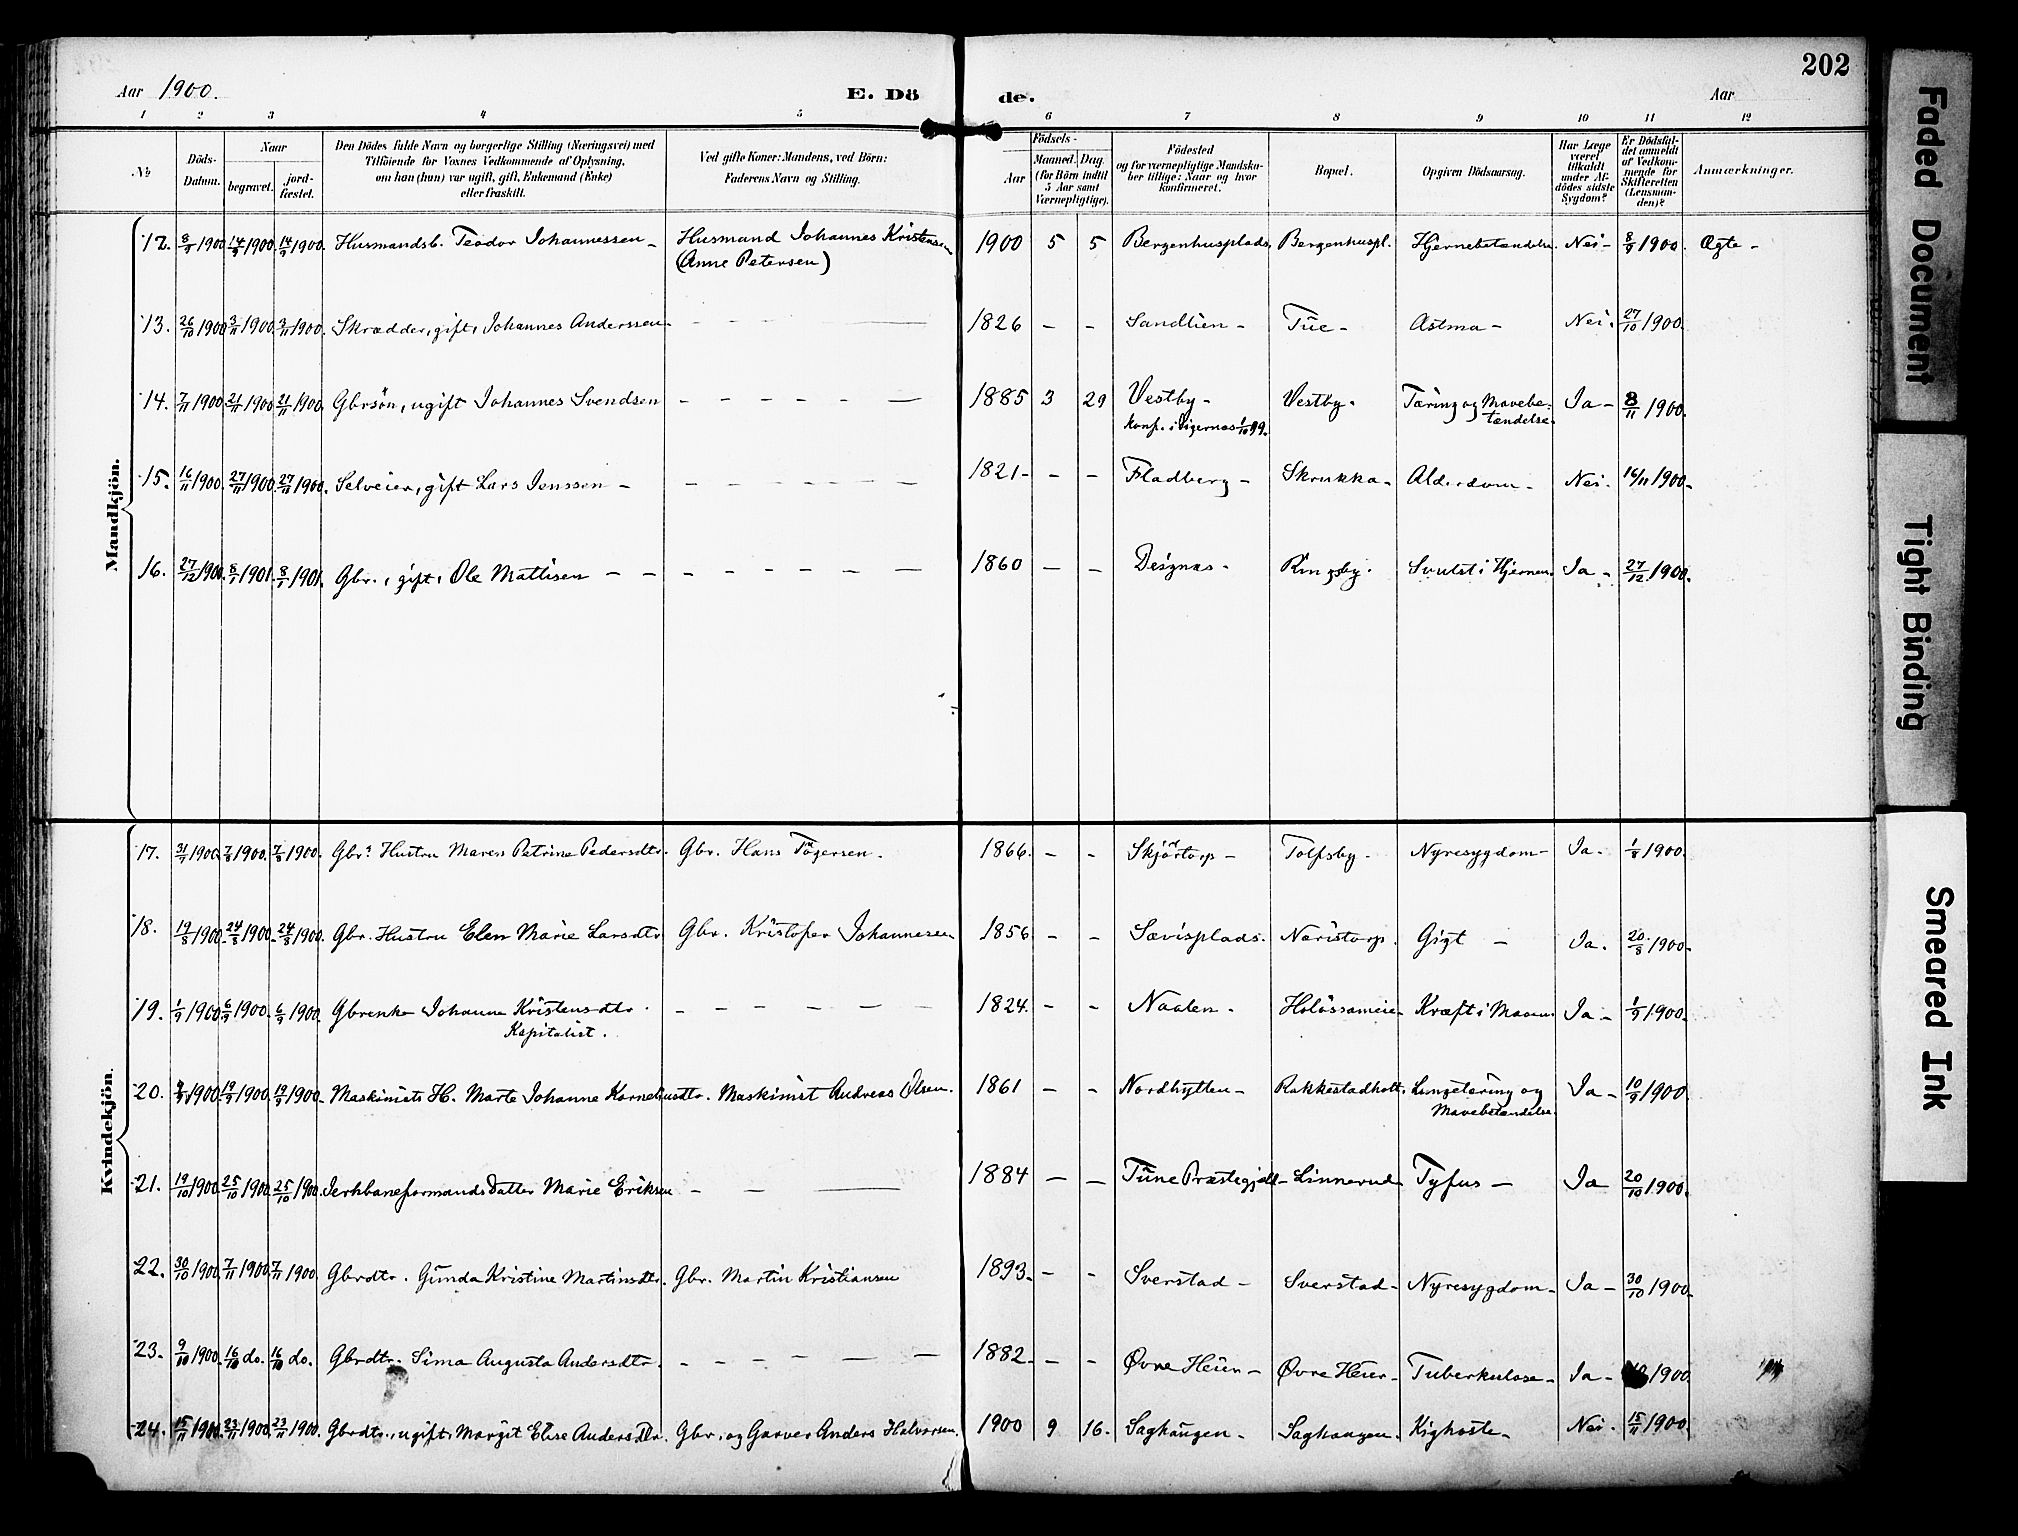 202
Aar 1900.
E. Dö
de.
Aar
1 2 3 4 5 6 7 8 9 10 11 12
№
Döds-
Datum.
Naar
begravet.
jord-
fæstet.
Den Dödes fulde Navn og borgerlige Stilling (Næringsvei) med
Tilföiende for Voxnes Vedkommende af Oplysning,
om han (hun) var ugift, gift, Enkemand (Enke)
eller fraskilt.
Ved gifte Koner: Mandens, ved Börn:
Faderens Navn og Stilling.
Födsels-
Aar
Maaned. Dag.
(for Börn indtil
5 Aar samt
Værnepligtige).
Födested
og for værnepligtige Mandska-
ber tillige: Naar og hvor
konfirmeret.
Bopæl.
Opgiven Dödsaarsag.
Har Læge
været
tilkaldt
under Af-
dödes sidste
Sygdom?
Er Dödsfal-
det anmeldt
af Vedkom-
mende for
Skifteretten
(Lensman-
den)?
Anmærkninger.
Mandkjön.
12. 8/9 1900 14/9 1900. 14/9 1900. Husmandsb. Teodor Johannessen – Husmand Johannes Kristensen – 1900 5 5 Bergenhusplads. Bergenhuspl. Hjernebetændelse. Nei – 8/9 1900. Ægte –
(Anne Petersen)
13. 26/10 1900 3/11 1900. 3/11 1900. Skrædder, gift, Johannes Anderssen – 1826 – – Sandlien – Tue – Astma – Nei. 27/10 1900.
14. 7/11 1900. 21/11 1900 21/11 1900. Gbrsön, ugift Johannes Svendsen – – – – – 1885 3 29 Vestby – Vestby. Tæring og Mavebe- Ja – 8/11 1900.
konf. i Vigernes 1/10 99. tændelse.
15. 16/11 1900. 27/11 1900. 27/11 1900. Selveier, gift Lars Jenssen – – – – – 1821 – – – Fladberg – Skrukka – Alderdom – Nei. 16/11 1900 –
16. 27/12 1900. 8/1 1901. 8/1 1901. Gbr., gift, Ole Mattisen – – – – – – 1860 – – Designæs – Ringsby. Svulst i Hjernen. Ja – 27/12 1900.
Kvindekjön.
17. 31/7 1900. 7/8 1900. 7/8 1900. Gbr. Hustru Maren Petrine Pedersdtr. Gbr. Hans Tögersen. 1866. – – Skjörtorp – Tolfsby. Nyresygdom – Ja. 1/8 1900.
18. 19/8 1900. 24/8 1900. 24/8 1900. Gbr. Hustru Elen Marie Larsdtr. Gbr. Kristofer Johannesen 1856 – – Sævisplads. Næristorp. Gigt – Ja. 20/8 1900 –
19. 1/9 1900 6/9 1900. 6/9 1900. Gbrenke Johanne Kristensdtr. – – – – 1824. – – Naalen – Holössameie – Kræft i Maven. Ja – 1/9 1900.
Kapitalist.
20. 1900 19/9 1900. 19/9 1900. Maskinists H. Marte Johanne Korneliusdtr. Maskinist Andreas Olsen. 1861 – – Nordhytten – Rakkestadholt. Lungetæring og Ja – 10/9 1900.
Mavebetændelse.
21. 19/10 1900 25/10 1900. 25/10 1900. Jernbaneformands Datter Marie Eriksen – – 1884 – – Tune Præstegjeld – Linnerud – Tyfus – Ja 20/10 1900.
22. 30/10 1900. 7/11 1900. 7/11 1900. Gbrdtr. Gunda Kristine Martinsdtr. Gbr. Martin Kristiansen 1893. – – Sverstad – Sverstad – Nyresygdom – Ja – 30/10 1900 –
23. 9/10 1900. 16/10 do. 16/10 do. Gbrdtr. Sima Augusta Andersdtr. – – – – 1882. – – Øvre Heier – Øvre Heier – Tuberkulose – Ja – 1900.
24. 15/11 1900. 23/11 1900. 23/11 1900. Gbrdtr., ugift, Margit Elise Andersdtr. Gbr. og Garver Anders Halvorsen. 1900 9 16. Saghaugen – Saghaugen. Kighoste – Nei. 15/11 1900.
Faded Document
Tight Binding
Smeared Ink